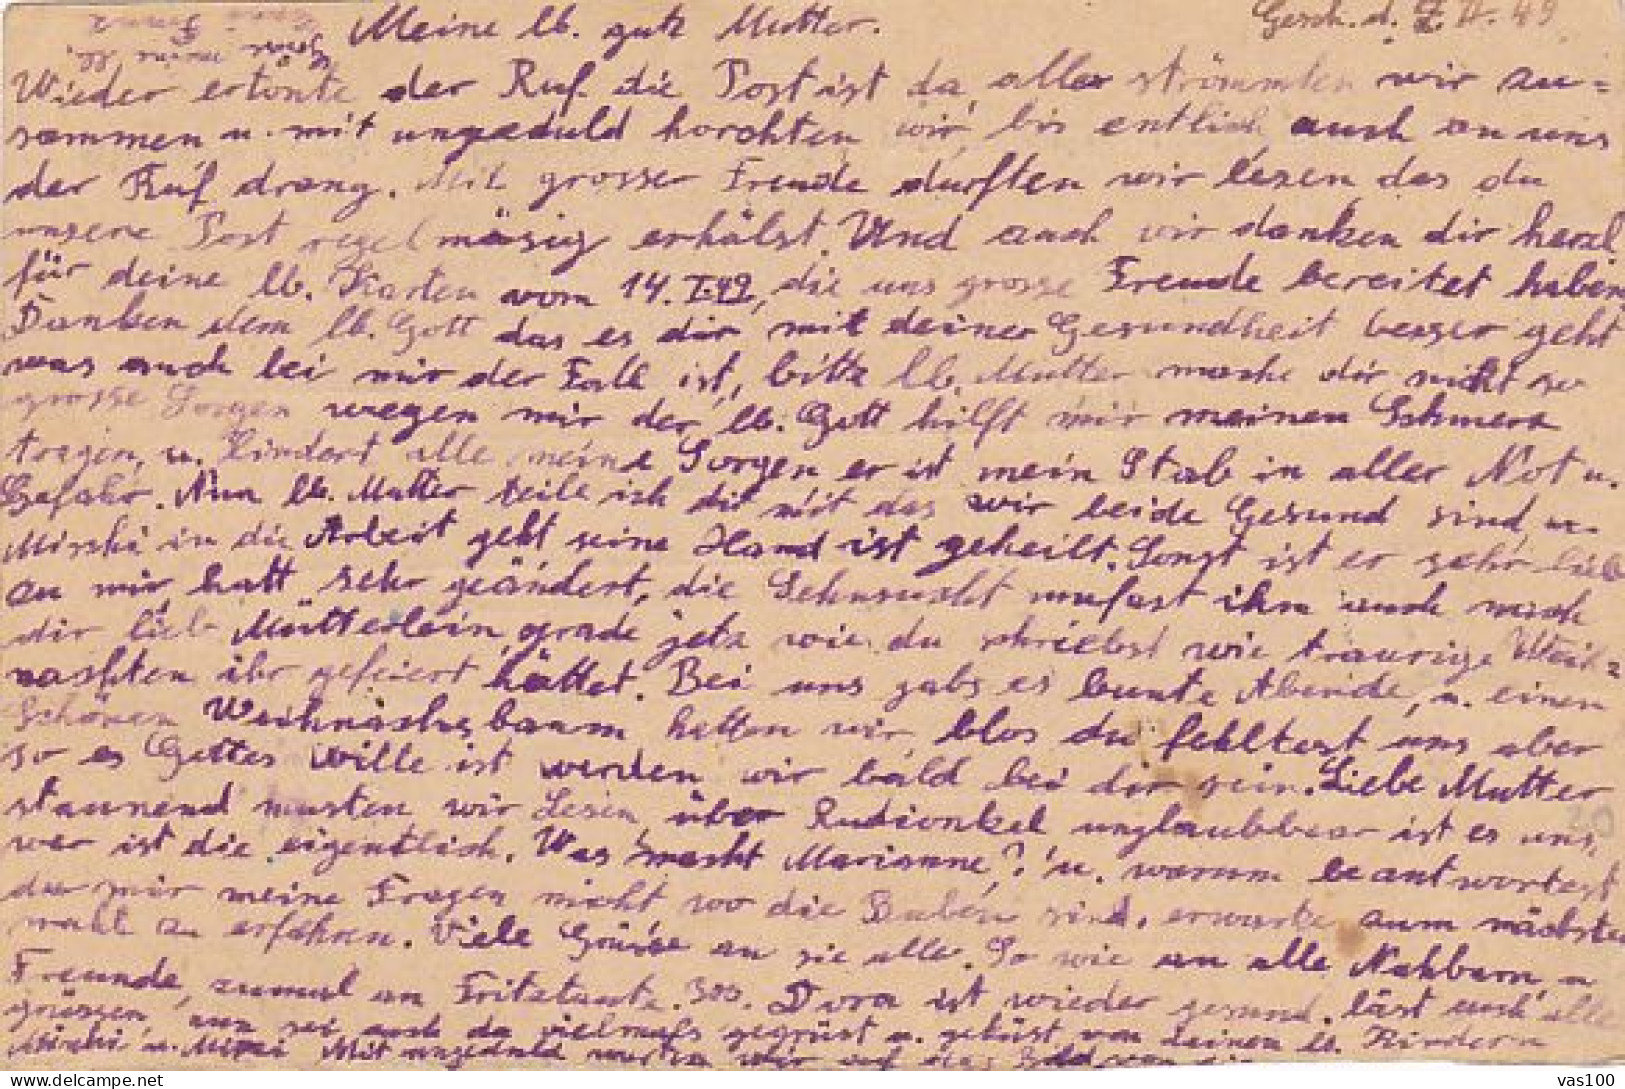 Meine lb. gute Mutter.
Gesch. d. 7 II. 49
Wieder ertönte der Ruf die Post ist da, alles strömmten wir zu=
sammen u. mit ungeduld horchten wir, bis entlich auch an uns
der Ruf drang. Mit grosser Freude durften wir lesen das du
unsere Post regelmäsig erhälst. Und auch wir danken dir herzl.
für deine lb. Karten vom 14. I. 49, die uns grosse Freude bereitet haben
Danken dem lb. Gott das es dir mit deiner Gesundheit besser geht
was auch bei mir der Fall ist, bitte lb. Mutter mache dir nicht so
grosse Sorgen wegen mir der lb. Gott hilft mir meinen Schmerz
tragen, u. lindert alle meine Sorgen er ist mein Stab in aller Not u.
Gefahr. Nun lb. Mutter teile ich dir mit das wir beide Gesund sind, u.
Mischi in die Arbeit geht seine Hand ist geheilt. Sonst ist er sehr lieb
zu mir, hatt sehr geändert, die Sehnsucht umfast ihn auch nach
dir lieb Mütterlein, grade jetz wie du schriebst wie traurige Weih=
nachten ihr gefeiert hättet. Bei uns gabs es bunte Abende, u. einen
Schönen Weihnachsbaum hatten wir, blos du fehltest uns aber
so es Gottes wille ist werden wir bald bei dir sein. Liebe Mutter
staunend musten wir Lesen, über Rudionkel unglaubbar ist es uns,
wer ist die eigentlich. Was macht Marianne,? u. warum beantwortest
du mir meine Fragen nicht wo die Buben sind, erwarte zum nächsten
mahl zu erfahren. Viele Grüsse an sie alle. So wie an alle Nahbarn, u
Freunde, zumal an Fritztante. Dora ist wieder gesund. läst auch alle
grüssen, nun sei auch du vielmals gegrüst u. geküst von deinen lb. Kindern
Mischi u. Mitzi Mit ungeduld warten wir auf das
vas100